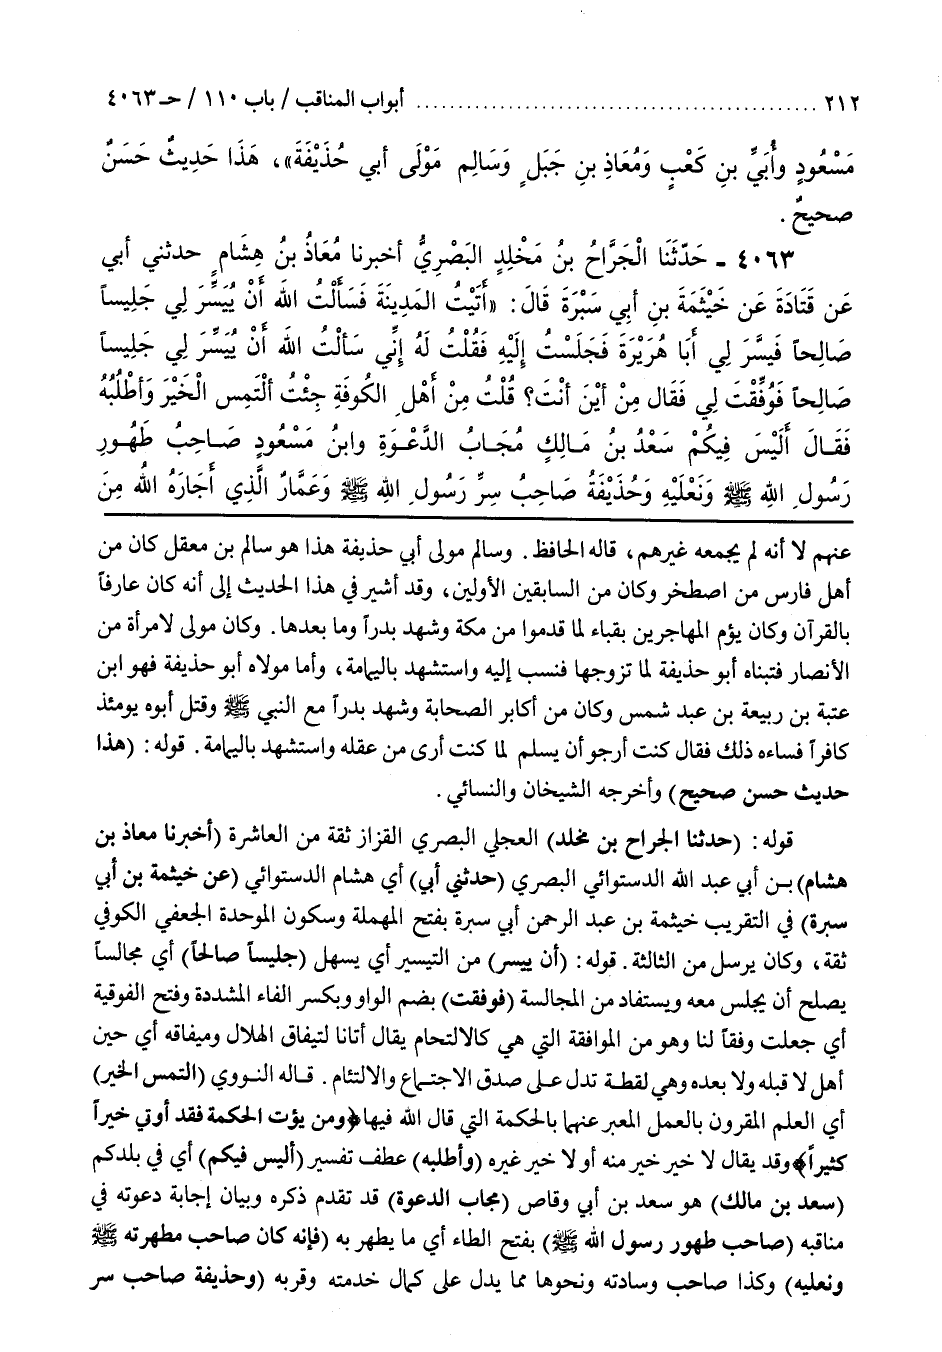 ٢١٢ ................................................ أبواب المناقب / باب ١١٠ / حـ ٤٠٦٣
مَسْعُودٍ وأُبَيِّ بنِ كَعْبٍ وَمُعَاذِ بنِ جَبَلٍ وَسَالِمِ مَوْلَى أبي حُذَيْفَةَ»، هَذَا حَدِيثٌ حَسَنٌ
صحيحٌ.
٤٠٦٣ ـ حَدّثَنَا الْجَرَّاحُ بنُ مَخْلِدٍ البَصْرِيُّ أخبرنا مُعَاذُ بنُ هِشَامٍ حدثني أبي
عَن قَتَادَةَ عَن خَيْثَمَةَ بنِ أبِي سَبْرَةَ قَالَ: «أَتَيْتُ المَدِينَةَ فَسَأَلْتُ الله أَنْ يُيَسِّرَ لِي جَلِيساً
صَالِحاً فَيَسَّرَ لِي أَبَا هُرَيْرَةَ فَجَلَسْتُ إِلَيْهِ فَقُلْتُ لَهُ إِنِّي سَألْتُ الله أَنْ يُيَسِّرَ لِي جَلِيساً
صَالِحاً فَوُفِّقْتَ لِي فَقَال مِنْ أيْنَ أنْتَ؟ قُلْتُ مِنْ أَهْلِ الكُوفَةِ جِئْتُ ألْتَمِس الْخَيْرَ وَأطْلُبُهُ
فَقَـالَ أَلَيْسَ فِيكُمْ سَعْدُ بنُ مَـالِكٍ مُجَابُ الدَّعْوَةِ وابنُ مَسْعُودٍ صَـاحِبُ طَهُـورِ
رَسُولِ اللهِ ﷺ وَنَعْلَيْهِ وَحُذَيْفَةُ صَاحِبُ سِرِّ رَسُولِ اللهِ ﷺ وَعَمَّارُ الَّذِي أَجَارَهُ الله مِنَ
عنهم لا أنه لم يجمعه غيرهم، قاله الحافظ. وسالم مولى أبي حذيفة هذا هو سالم بن معقل كان من
أهل فارس من اصطخر وكان من السابقين الأولين، وقد أشير في هذا الحديث إلى أنه كان عارفاً
بالقرآن وكان يؤم المهاجرين بقباء لما قدموا من مكة وشهد بدراً وما بعدها. وكان مولى لامرأة من
الأنصار فتبناه أبو حذيفة لما تزوجها فنسب إليه واستشهد باليمامة، وأما مولاه أبو حذيفة فهو ابن
عتبة بن ربيعة بن عبد شمس وكان من أكابر الصحابة وشهد بدراً مع النبي ﷺ وقتل أبوه يومئذ
كافراً فساءه ذلك فقال كنت أرجو أن يسلم لما كنت أرى من عقله واستشهد باليمامة. قوله: (هذا
حديث حسن صحيح) وأخرجه الشيخان والنسائي.
قوله: (حدثنا الجراح بن مخلد) العجلي البصري القزاز ثقة من العاشرة (أخبرنا معاذ بن
هشام) بـن أبي عبد الله الدستوائي البصري (حدثني أبي) أي هشام الدستوائي (عن خيثمة بن أبي
سبرة) في التقريب خيثمة بن عبد الرحمن أبي سبرة بفتح المهملة وسكون الموحدة الجعفي الكوفي
ثقة، وكان يرسل من الثالثة. قوله: (أن ييسر) من التيسير أي يسهل (جليساً صالحاً) أي مجالسا
يصلح أن يجلس معه ويستفاد من المجالسة (فوفقت) بضم الواو وبكسر الفاء المشددة وفتح الفوقية
أي جعلت وفقاً لنا وهو من الموافقة التي هي كالالتحام يقال أتانا لتيفاق الهلال وميفاقه أي حين
أهل لا قبله ولا بعده وهي لفظة تدل على صدق الاجتماع والالتئام. قـاله النـووي (التمس الخير)
أي العلم المقرون بالعمل المعبر عنهما بالحكمة التي قال الله فيها ﴿ومن يؤت الحكمة فقد أوتي خيراً
كثيراً﴾ وقد يقال لا خير خير منه أو لا خير غيره (وأطلبه) عطف تفسير (أليس فيكم) أي في بلدكم
(سعد بن مالك) هو سعد بن أبي وقاص (مجاب الدعوة) قد تقدم ذكره وبيان إجابة دعوته في
مناقبه (صاحب طهور رسول الله ﷺ) بفتح الطاء أي ما يطهر به (فإنه كان صاحب مطهرته ﷺ
ونعليه) وكذا صاحب وسادته ونحوها مما يدل على كمال خدمته وقربه (وحذيفة صاحب سر